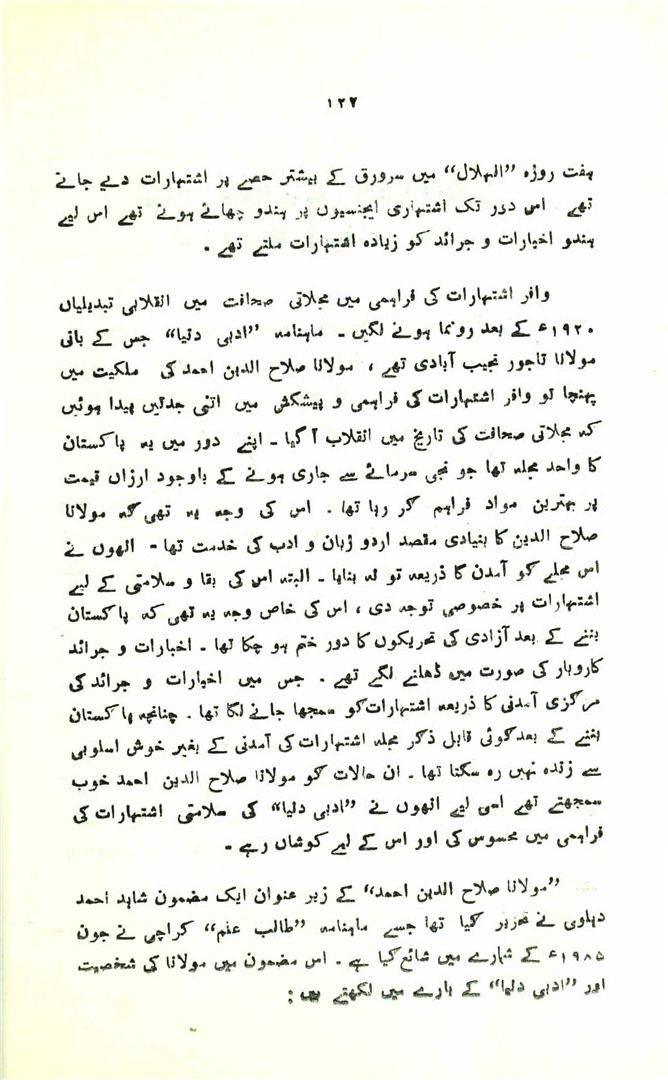 ۱۲۷
ہفت روزہ ”الہلال“ میں سرورق کے بیشتر حصے پر اشتہارات دیے جاتے
تھے اس دور تک اشتہاری ایجنسیوں پر ہندو چھائے ہوئے تھے اس لیے
ہندو اخبارات و جرائد کو زیادہ اشتہارات ملتے تھے ۔
وافر اشتہارات کی فراہمی میں مجلاتی صحافت میں انقلابی تبدیلیاں
۱۹۲۰ء کے بعد رونما ہونے لگیں ۔ ماہنامہ ”ادبی دنیا“ جس کے بانی
مولانا تاجور نجیب آبادی تھے ، مولانا صلاح الدین احمد کی ملکیت میں
پہنچا تو وافر اشتہارات کی فراہمی و پیشکش میں اتنی جدتیں پیدا ہوئیں
کہ مجلاتی صحافت کی تاریخ میں انقلاب آ گیا ۔ اپنے دور میں یہ پاکستان
کا واحد مجلہ تھا جو نجی سرمائے سے جاری ہونے کے باوجود ارزاں قیمت
پر بہترین مواد فراہم کر رہا تھا ۔ اس کی وجہ یہ تھی کہ مولانا
صلاح الدین کا بنیادی مقصد اردو زبان و ادب کی خدمت تھا ۔ انھوں نے
اس مجلے کو آمدن کا ذریعہ تو نہ بنایا ۔ البتہ اس کی بقا و سلامتی کے لیے
اشتہارات پر خصوصی توجہ دی ، اس کی خاص وجہ یہ تھی کہ پاکستان
بننے کے بعد آزادی کی تحریکوں کا دور ختم ہو چکا تھا ۔ اخبارات و جرائد
کاروبار کی صورت میں ڈھلنے لگے تھے ۔ جس میں اخبارات و جرائد کی
مرکزی آمدنی کا ذریعہ اشتہارات کو سمجھا جانے لگا تھا ۔ چنانچہ پاکستان
بننے کے بعد کوئی قابل ذکر مجلہ اشتہارات کی آمدنی کے بغیر خوش اسلوبی
سے زندہ نہیں رہ سکتا تھا ۔ ان حالات کو مولانا صلاح الدین احمد خوب
سمجھتے تھے اسی لیے انھوں نے ”ادبی دنیا“ کی سلامتی اشتہارات کی
فراہمی میں محسوس کی اور اس کے لیے کوشاں رہے ۔
”مولانا صلاح الدین احمد“ کے زیر عنوان ایک مضمون شاہد احمد
دہلوی نے تحریر کیا تھا جسے ماہنامہ ”طالب علم“ کراچی نے جون
۱۹۸۵ء کے شمارے میں شائع کیا ہے ۔ اس مضمون میں مولانا کی شخصیت
اور ”ادبی دنیا“ کے بارے میں لکھتے ہیں :